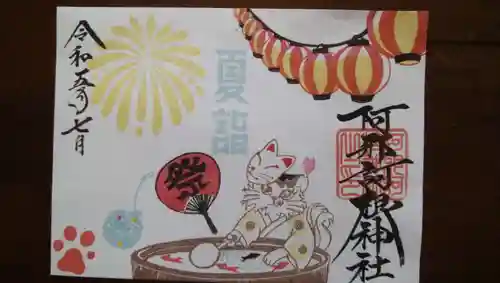 令和五年七月
夏詣
祭
阿那訶根神社